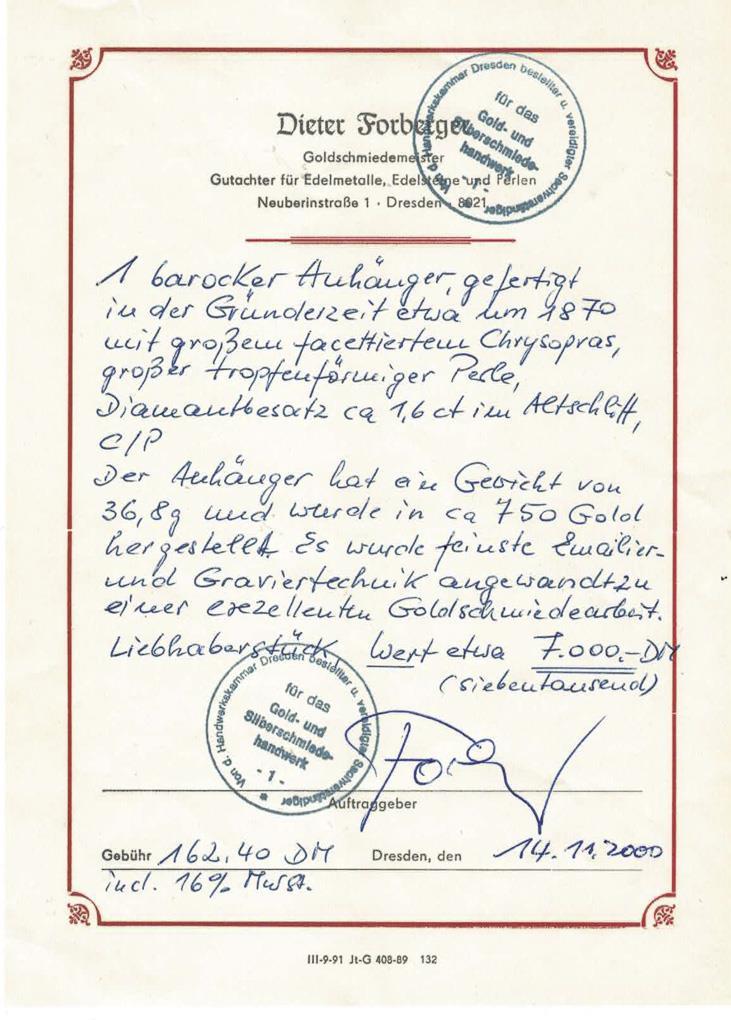 Dieter Forberger
Goldschmiedemeister
Gutachter für Edelmetalle, Edelsteine und Perlen
Neuberinstraße 1 · Dresden · 8021
Von d. Handwerkskammer Dresden bestellter u. vereidigter Sachverständiger
für das
Gold- und
Silberschmiede-
handwerk
- 1 -
1 barocker Anhänger, gefertigt
in der Gründerzeit etwa um 1870
mit großem facettiertem Chrysopras,
großer tropfenförmiger Perle,
Diamantbesatz ca 1,6 ct im Altschliff,
C/P
Der Anhänger hat ein Gewicht von
36,8g und wurde in ca 750 Gold
hergestellt. Es wurde feinste Emailier-
und Graviertechnik angewandt zu
einer exezellenten Goldschmiedearbeit.
Liebhaberstück, Wert etwa 7.000.- DM
(siebentausend)
Von d. Handwerkskammer Dresden bestellter u. vereidigter Sachverständiger
für das
Gold- und
Silberschmiede-
handwerk
- 1 -
Auftraggeber
Gebühr 162,40 DM Dresden, den 14.11.2000
incl. 16% Mwst.
III-9-91 Jt-G 408-89 132